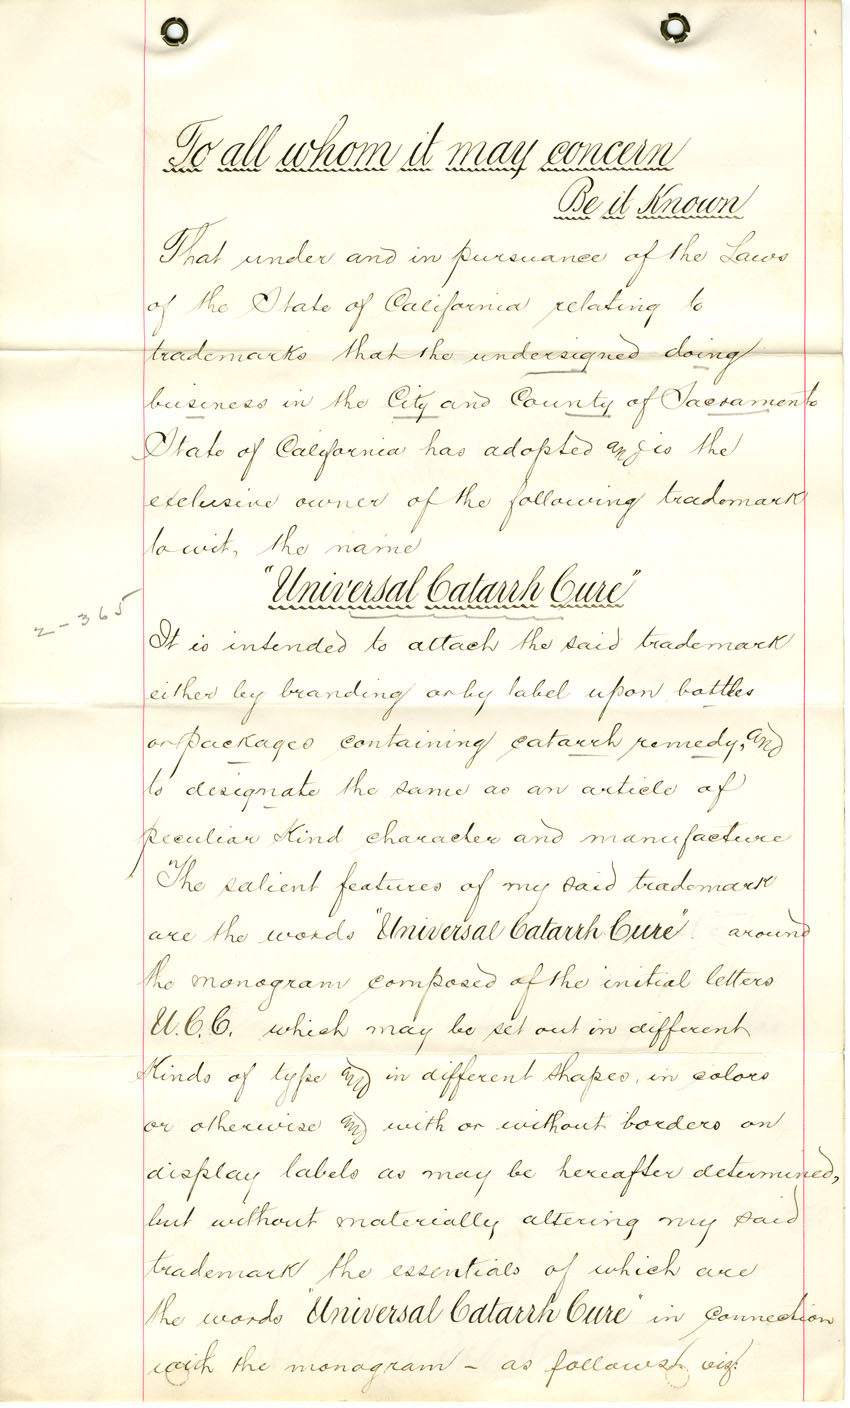 To all whom it may concern
Be it Known
That under and in pursuance of the Laws
of the State of California relating to
trademarks that the undersigned doing
business in the City and County of Sacramento
State of California has adopted and is the
exclusive owner of the following trademark
to wit, the name
"Universal Catarrh Cure"
2-365
It is intended to attach the said trademark
either by branding or by label upon bottles
or packages containing catarrh remedy, and
to designate the same as an article of
peculiar Kind character and manufacture
"The salient features of my said trademark
are the words "Universal Catarrh Cure" around
the monogram composed of the initial letters
U.C.C. which may be set out in different
Kinds of type and in different shapes, in colors
or otherwise and with or without borders on
display labels as may be hereafter determined,
but without materially altering my said
trademark the essentials of which are
the words "Universal Catarrh Cure" in connection
with the monogram – as follows viz: